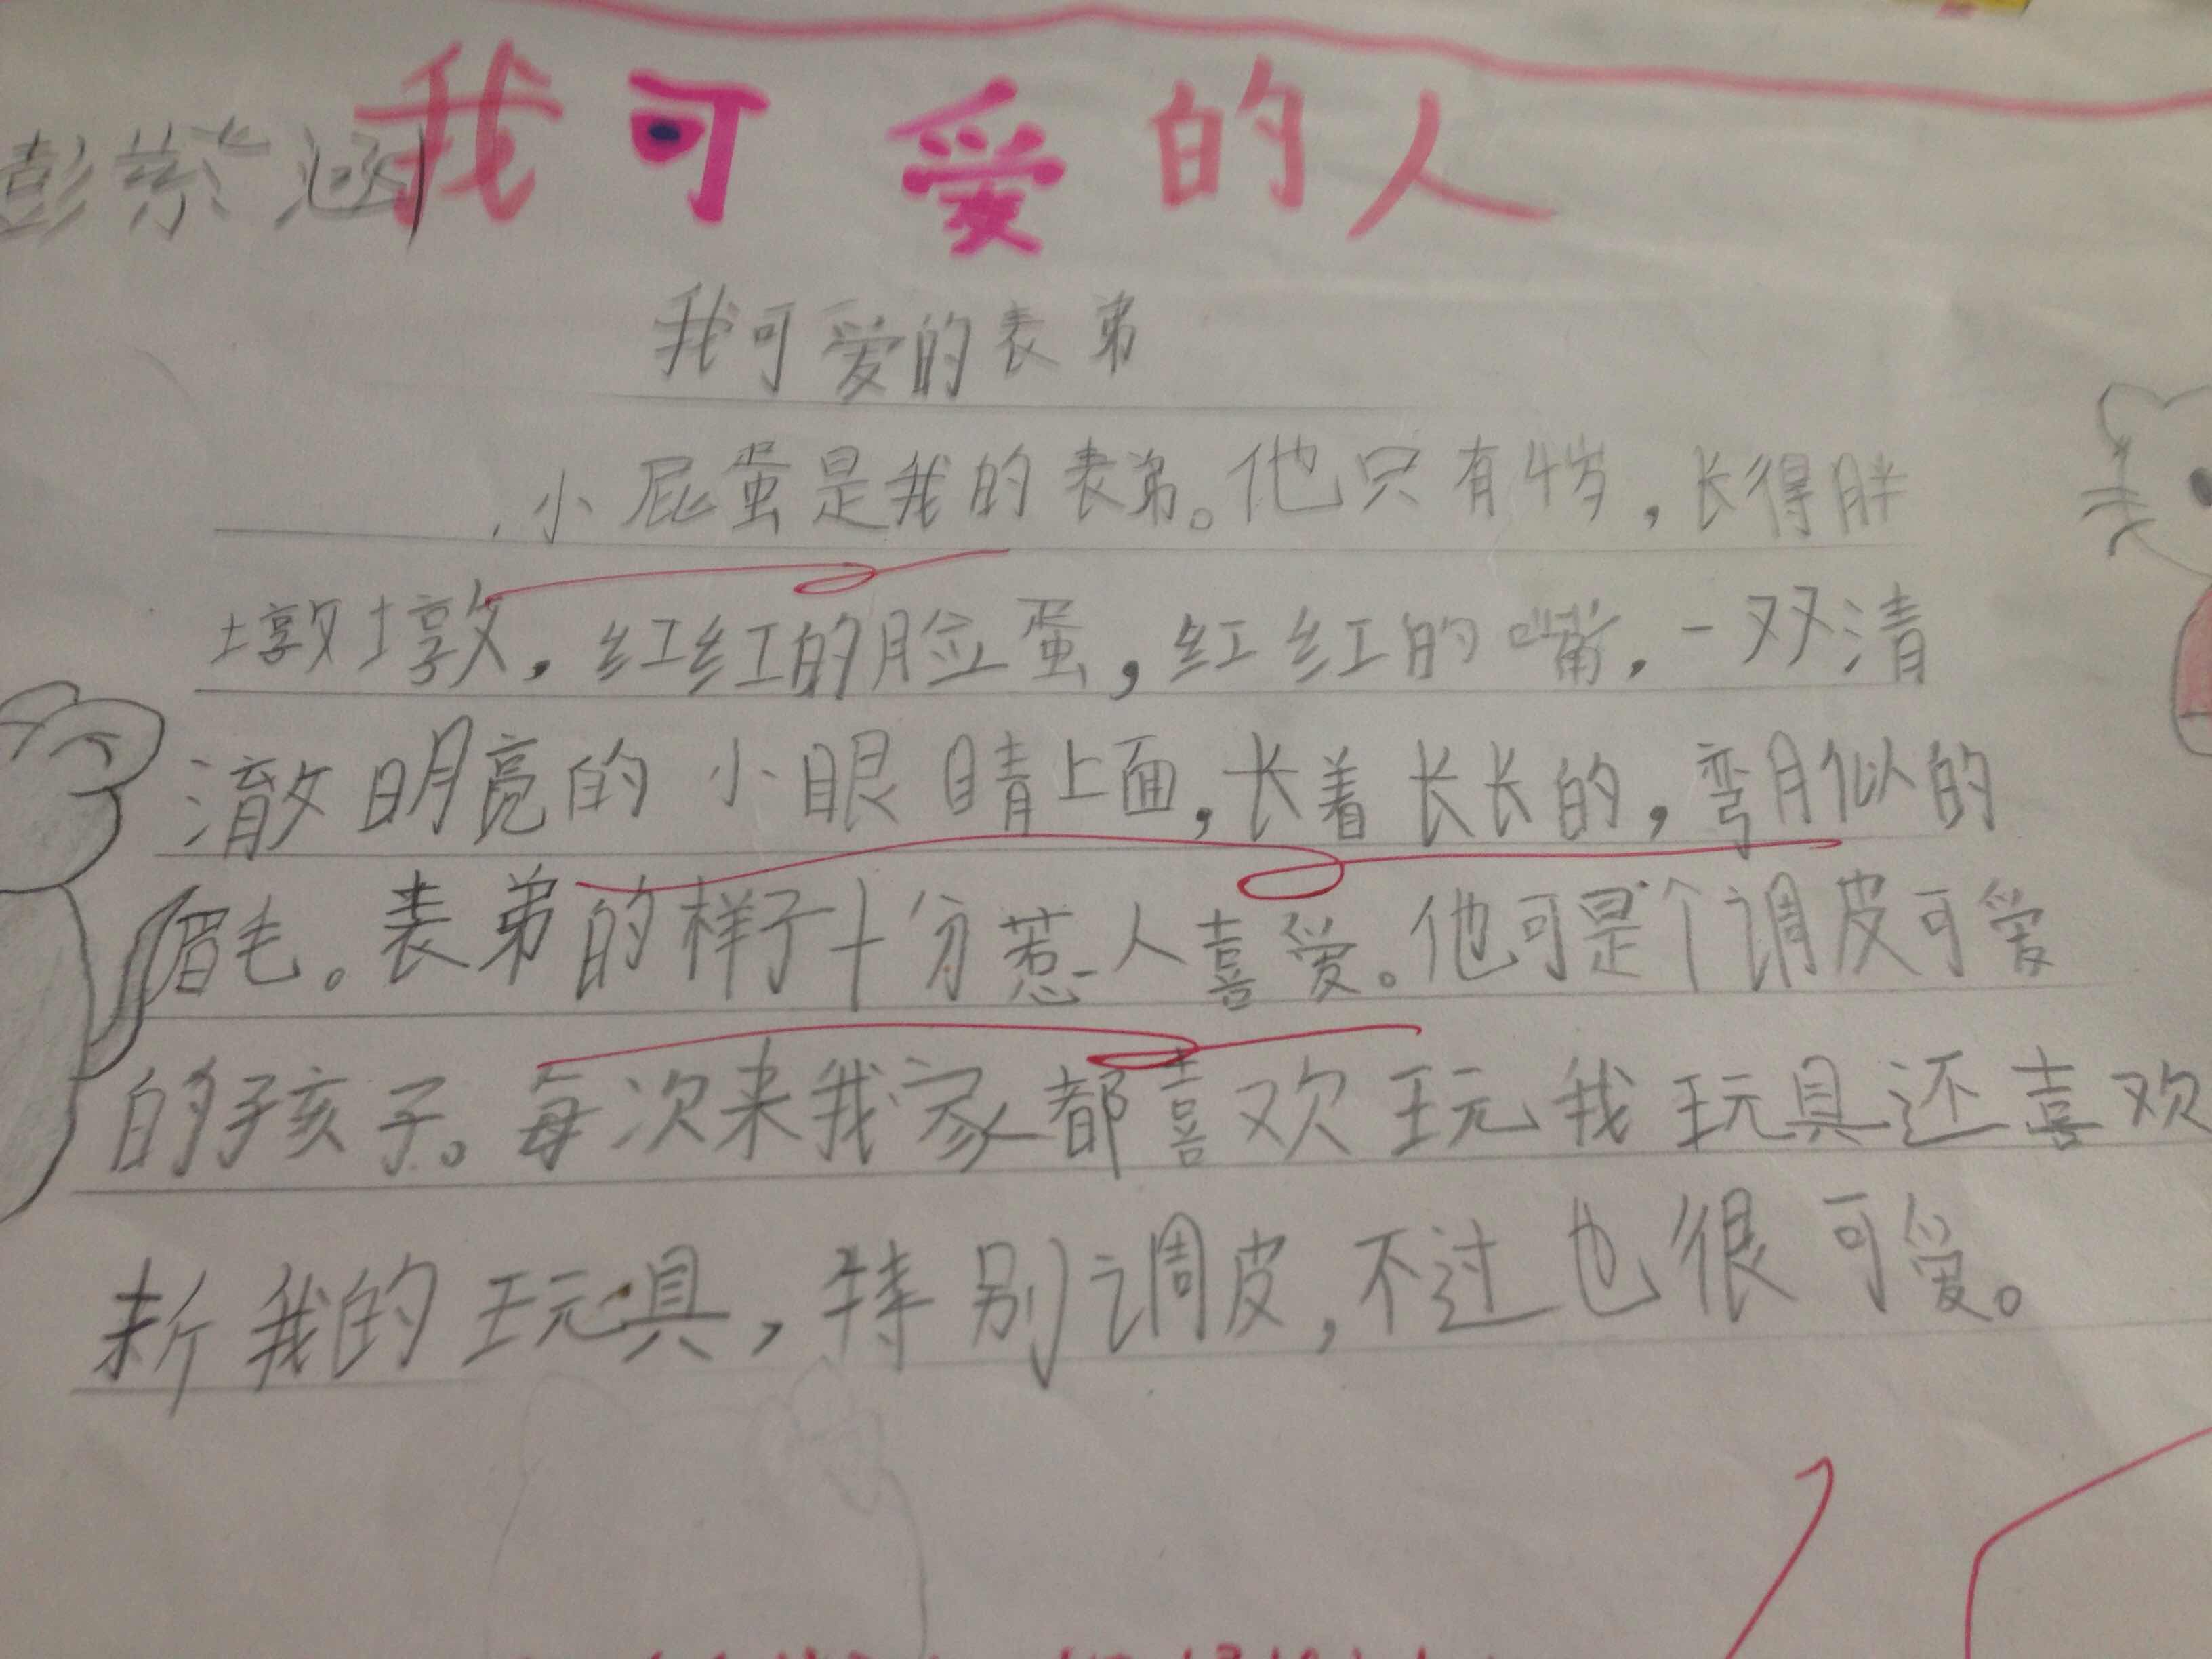 我可爱的人
彭紫涵
我可爱的表弟
小屁蛋是我的表弟。他只有4岁，长得胖
墩墩，红红的脸蛋，红红的嘴，一双清
澈明亮的小眼睛上面，长着长长的，弯月似的
眉毛。表弟的样子十分惹人喜爱。他可是个调皮可爱
的孩子。每次来我家都喜欢玩我玩具还喜欢
我的玩具，特别调皮，不过也很可爱。